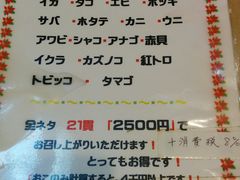 イカ・タコ・エビ・ホッキ
サバ・ホタテ・カニ・ウニ
アワビ・シャコ・アナゴ・赤貝
イクラ・カズノコ・紅トロ
トビッコ・タマゴ
全ネタ 21貫 「2500円」で
お召し上がりいただけます!
+消費税 8%
とってもお得です!
おこのみ計算すると 4千円以上です